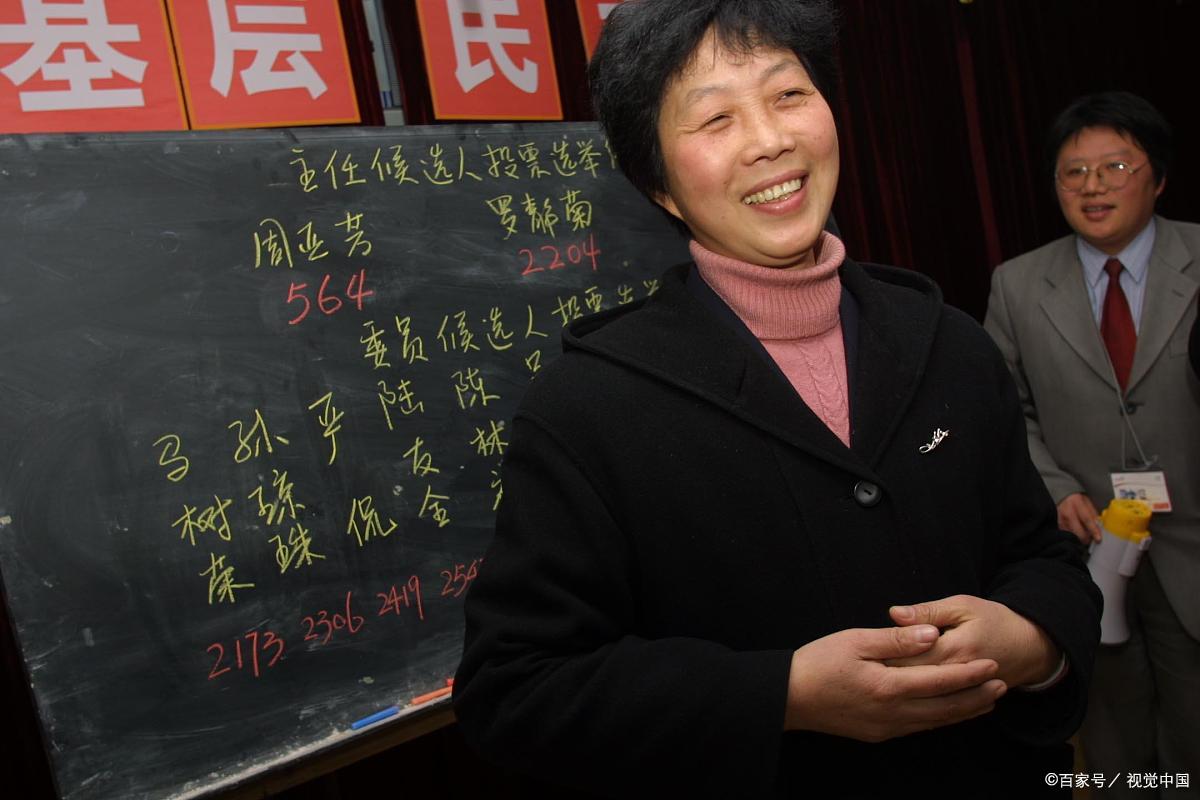 基层民
主任候选人投票选举
周亚芳 罗静菊
564 2204
委员候选人投票
马树荣 孙琼珠 严侃 陆友金 陈林
2173 2306 2419 254
©百家号／视觉中国